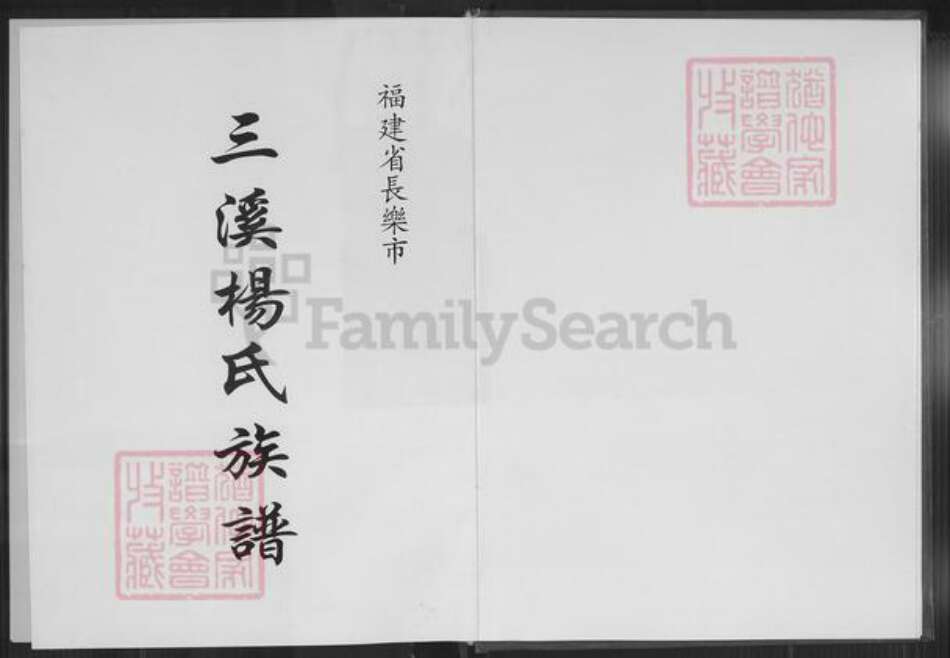 福建省長樂市
三溪楊氏族譜
猶他家譜學會收藏
猶他家譜學會收藏
FamilySearch